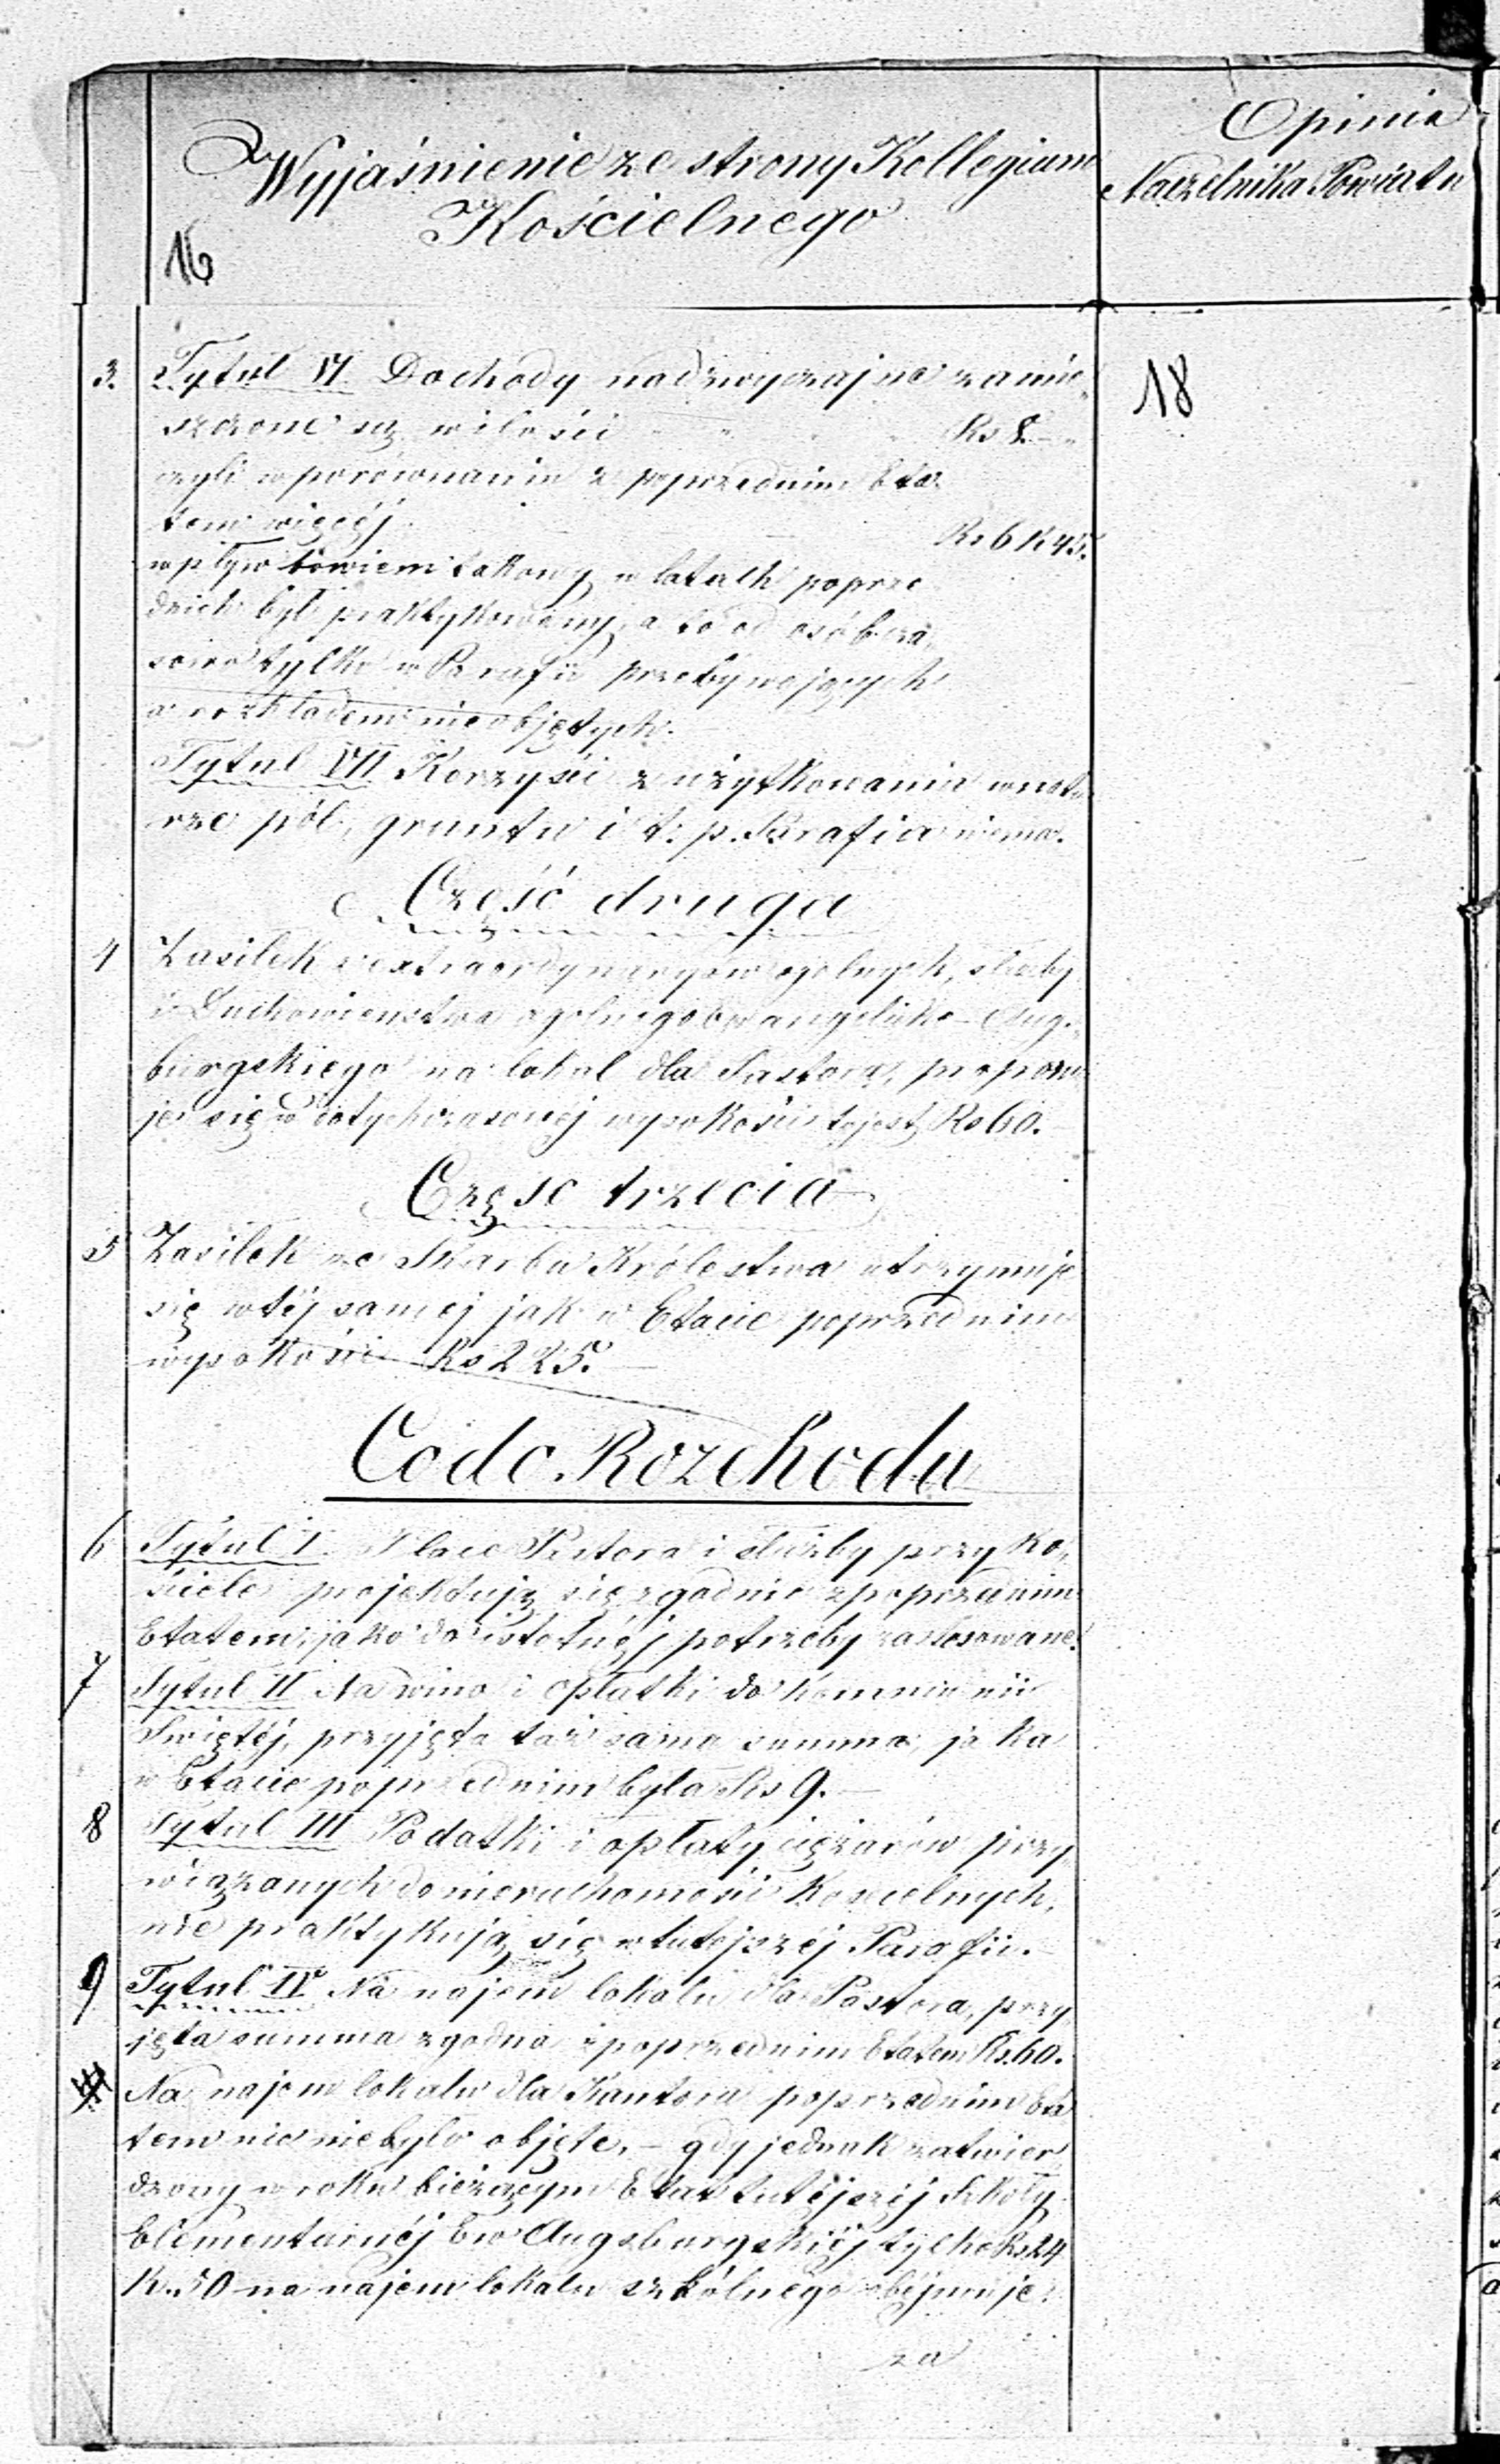 Wyjaśnienie ze strony Kollegium
Kościelnego
16
Opinia
Naczelnika Powiatu
18
3. Tytuł VI. Dochody nadzwyczajne zamie„
szczone są w ilości " " " Rs 8.—"
czyli w porównaniu z poprzednim Eta„
tem więcéj. Rs 6 K 45.
wpływ bowiem takowy w latach poprze
dnich był praktykowany, a to od osób cza„
sowo tylko w Parafii przebywających
a rozkładem nie objętych.—
Tytuł VII Korzyści z użytkowania w natu
rze pól, gruntu i t: p. Parafia niema.
Część druga
4 Zasiłek z extraordynaryów ogólnych, służby
i Duchowieństwa ogólnego Ewangelicko-Aug„
burgskiego na lokal dla Pastora, propónu
je się w dotychczasowéj wysokości tojest Rs 60.—
Częsc trzecia
5 Zasiłek ze Skarbu Królestwa utrzymuje
się w téj saméj jak w Etacie poprzednim
wysokości Rs 225.—
Co do Rozchodu
6 Tytuł I. Płace Pastora i służby przy Ko„
ściele projektują się zgodnie z poprzednim
Etatem, jako do istotnéj potrzeby zastosowane.
7 Tytuł II Na wino i opłatki do Kommunii
Swiętéj, przyjęta taż sama summa, jaka
w Etacie poprzednim była Rs 9.—
8 Tytuł III Podatki i opłaty ciężarów przy„
wiązanych do nieruchomości Kościelnych,
nie praktykują się w tutejszéj Parafii.—
9 Tytuł IV Na najem lokalu dla Pastora, przy„
jęta summa zgodna z poprzednim Etatem Rs. 60.
Na najem lokalu dla Kantora poprzednim Eta
tem nic niebyło objęte, — gdy jednak zatwier„
dzony w roku bieżącym Etat tutéjszéj Szkoły
Elementarnéj Ew Augsburgskiéj tylko Rs 24
K. 50 na najem lokalu szkólnego obéjmuje:
za